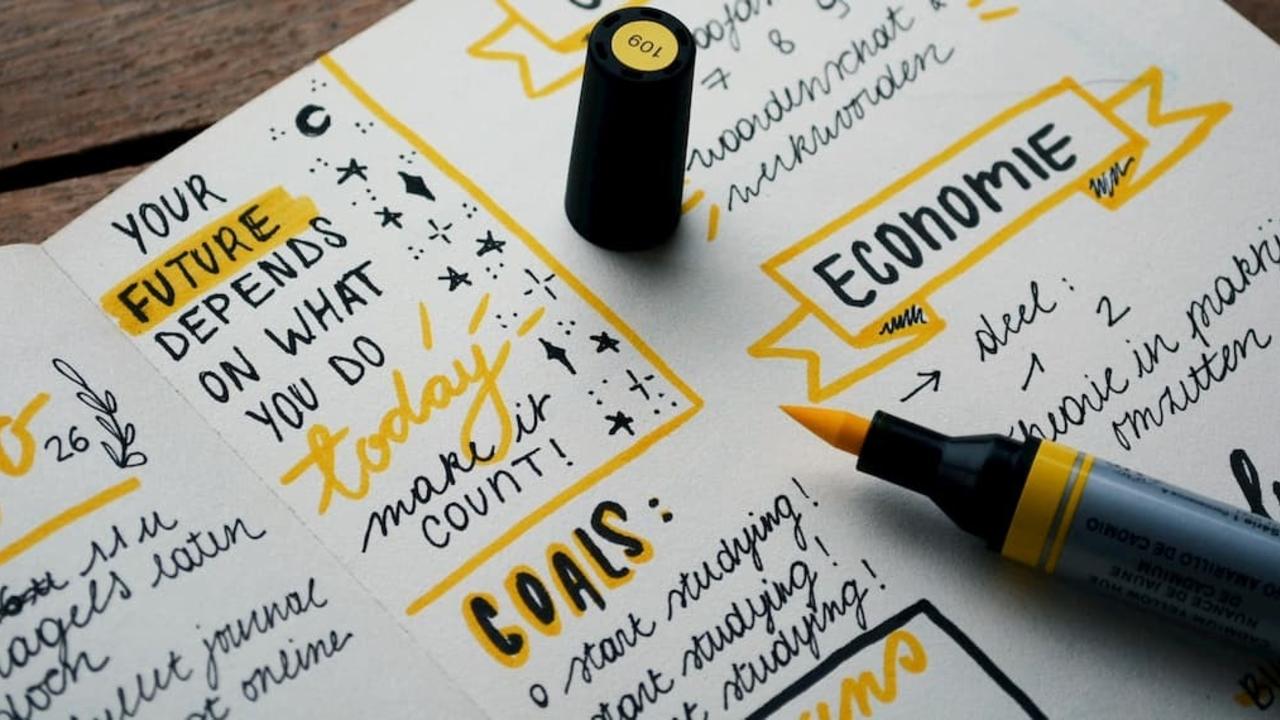 26
11 u
nagels laten
bullet journal
online
YOUR
FUTURE
DEPENDS
ON WHAT
YOU DO
today
make it
COUNT!
GOALS:
o start studying!
start studying!
start studying!
7 8 9
woordenschat
werkwoorden
ECONOMIE
→ deel:
1 2
theorie in praktij
omzetten
109
AMARILLO DE CADMIO
NUANCE DE JAUNE
DE CADMIUM
CADMIUM YELLOW HUE